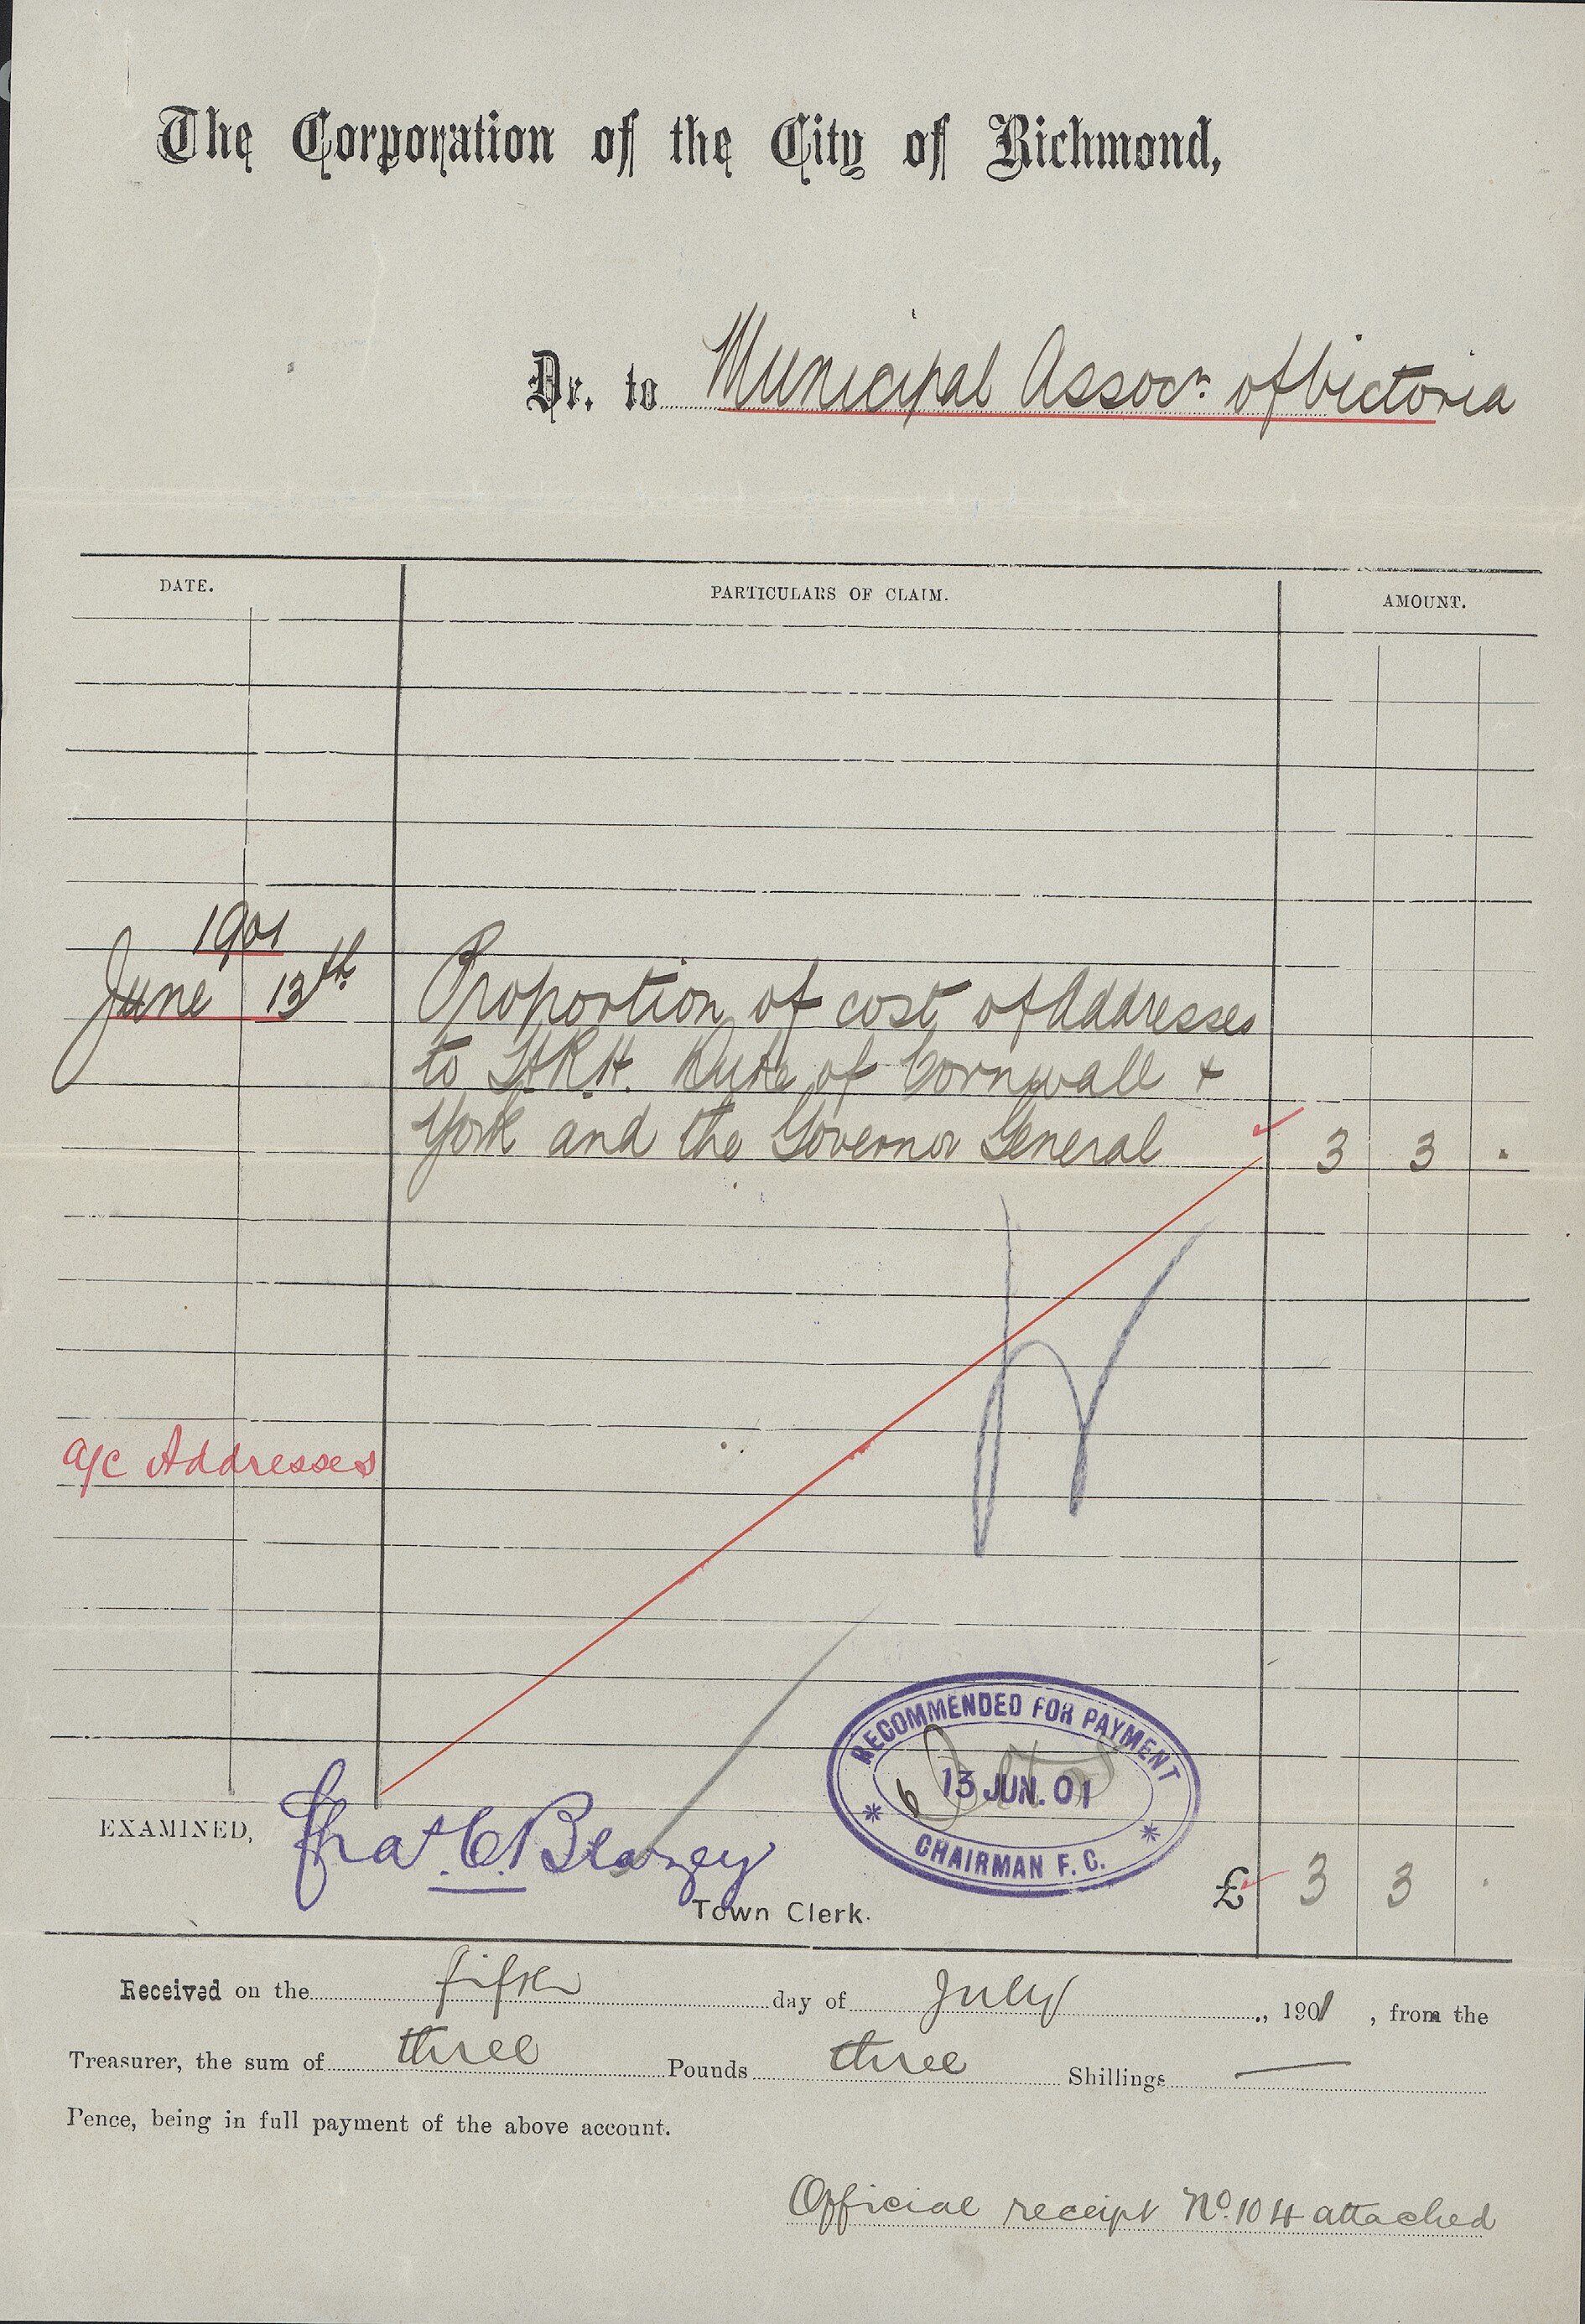 The Corporation of the City of Richmond,
Dr. to Municipal Assocn. of Victoria
DATE. PARTICULARS OF CLAIM. AMOUNT.
1901
June 13th. Proportion of cost of Addresses
to H.R.H. Duke of Cornwall +
York and the Governor General 3 3 .
a/c Addresses
RECOMMENDED FOR PAYMENT
13 JUN. 01
* CHAIRMAN F. C. *
EXAMINED, Chas. C. Blazey
Town Clerk. £ 3 3 .
Received on the fifth day of July, 1901, from the
Treasurer, the sum of three Pounds three Shillings —
Pence, being in full payment of the above account.
Official receipt No. 104 attached